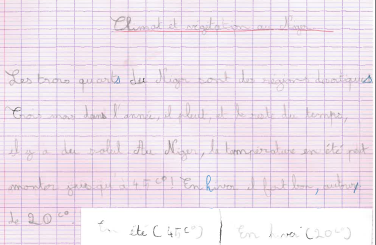 Climat et végétation au Niger
Les trois quarts du Niger sont des régions désertiques
Trois mois dans l'année, il pleut, et le reste du temps,
il y a du soleil Au Niger, la température en été peut
monter jusqu'à 45 c° ! En hiver il fait bon, autour
de 20 c°.
En été (45 c°) En hiver (20 c°)